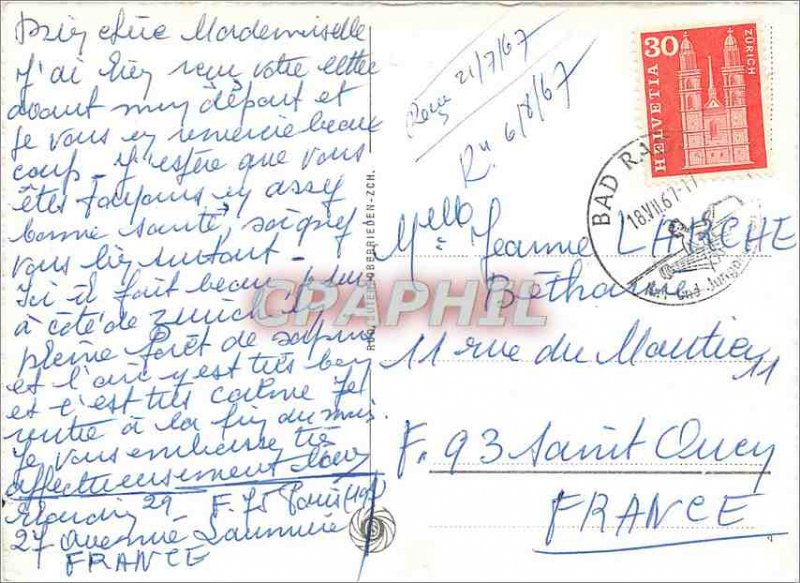 Bien chère Mademoiselle
J'ai bien reçu votre lettre
avant mon départ et
je vous en remercie beau
coup - J'espère que vous
êtes toujours en assez
bonne santé, soignez
vous bien surtout -
Ici il fait beau, je suis
à côté de Zurich en
pleine forêt de sapins
et l'air y est très bon
et c'est très calme Je
rentre à la fin du mois.
Je vous embrasse très
affectueusement
29 - F. 75 Paris (19e)
27 avenue Laumière
FRANCE
Reçu 21/7/67
R. 6/8/67
HELVETIA 30 ZÜRICH
BAD RA
18 VII 67-17
CPAPHIL
OBERRIEDEN-ZCH.
Melle Jeanne LARCHE
Béthanie
11 rue du Moutier 11
F. 93 Saint Ouen
FRANCE